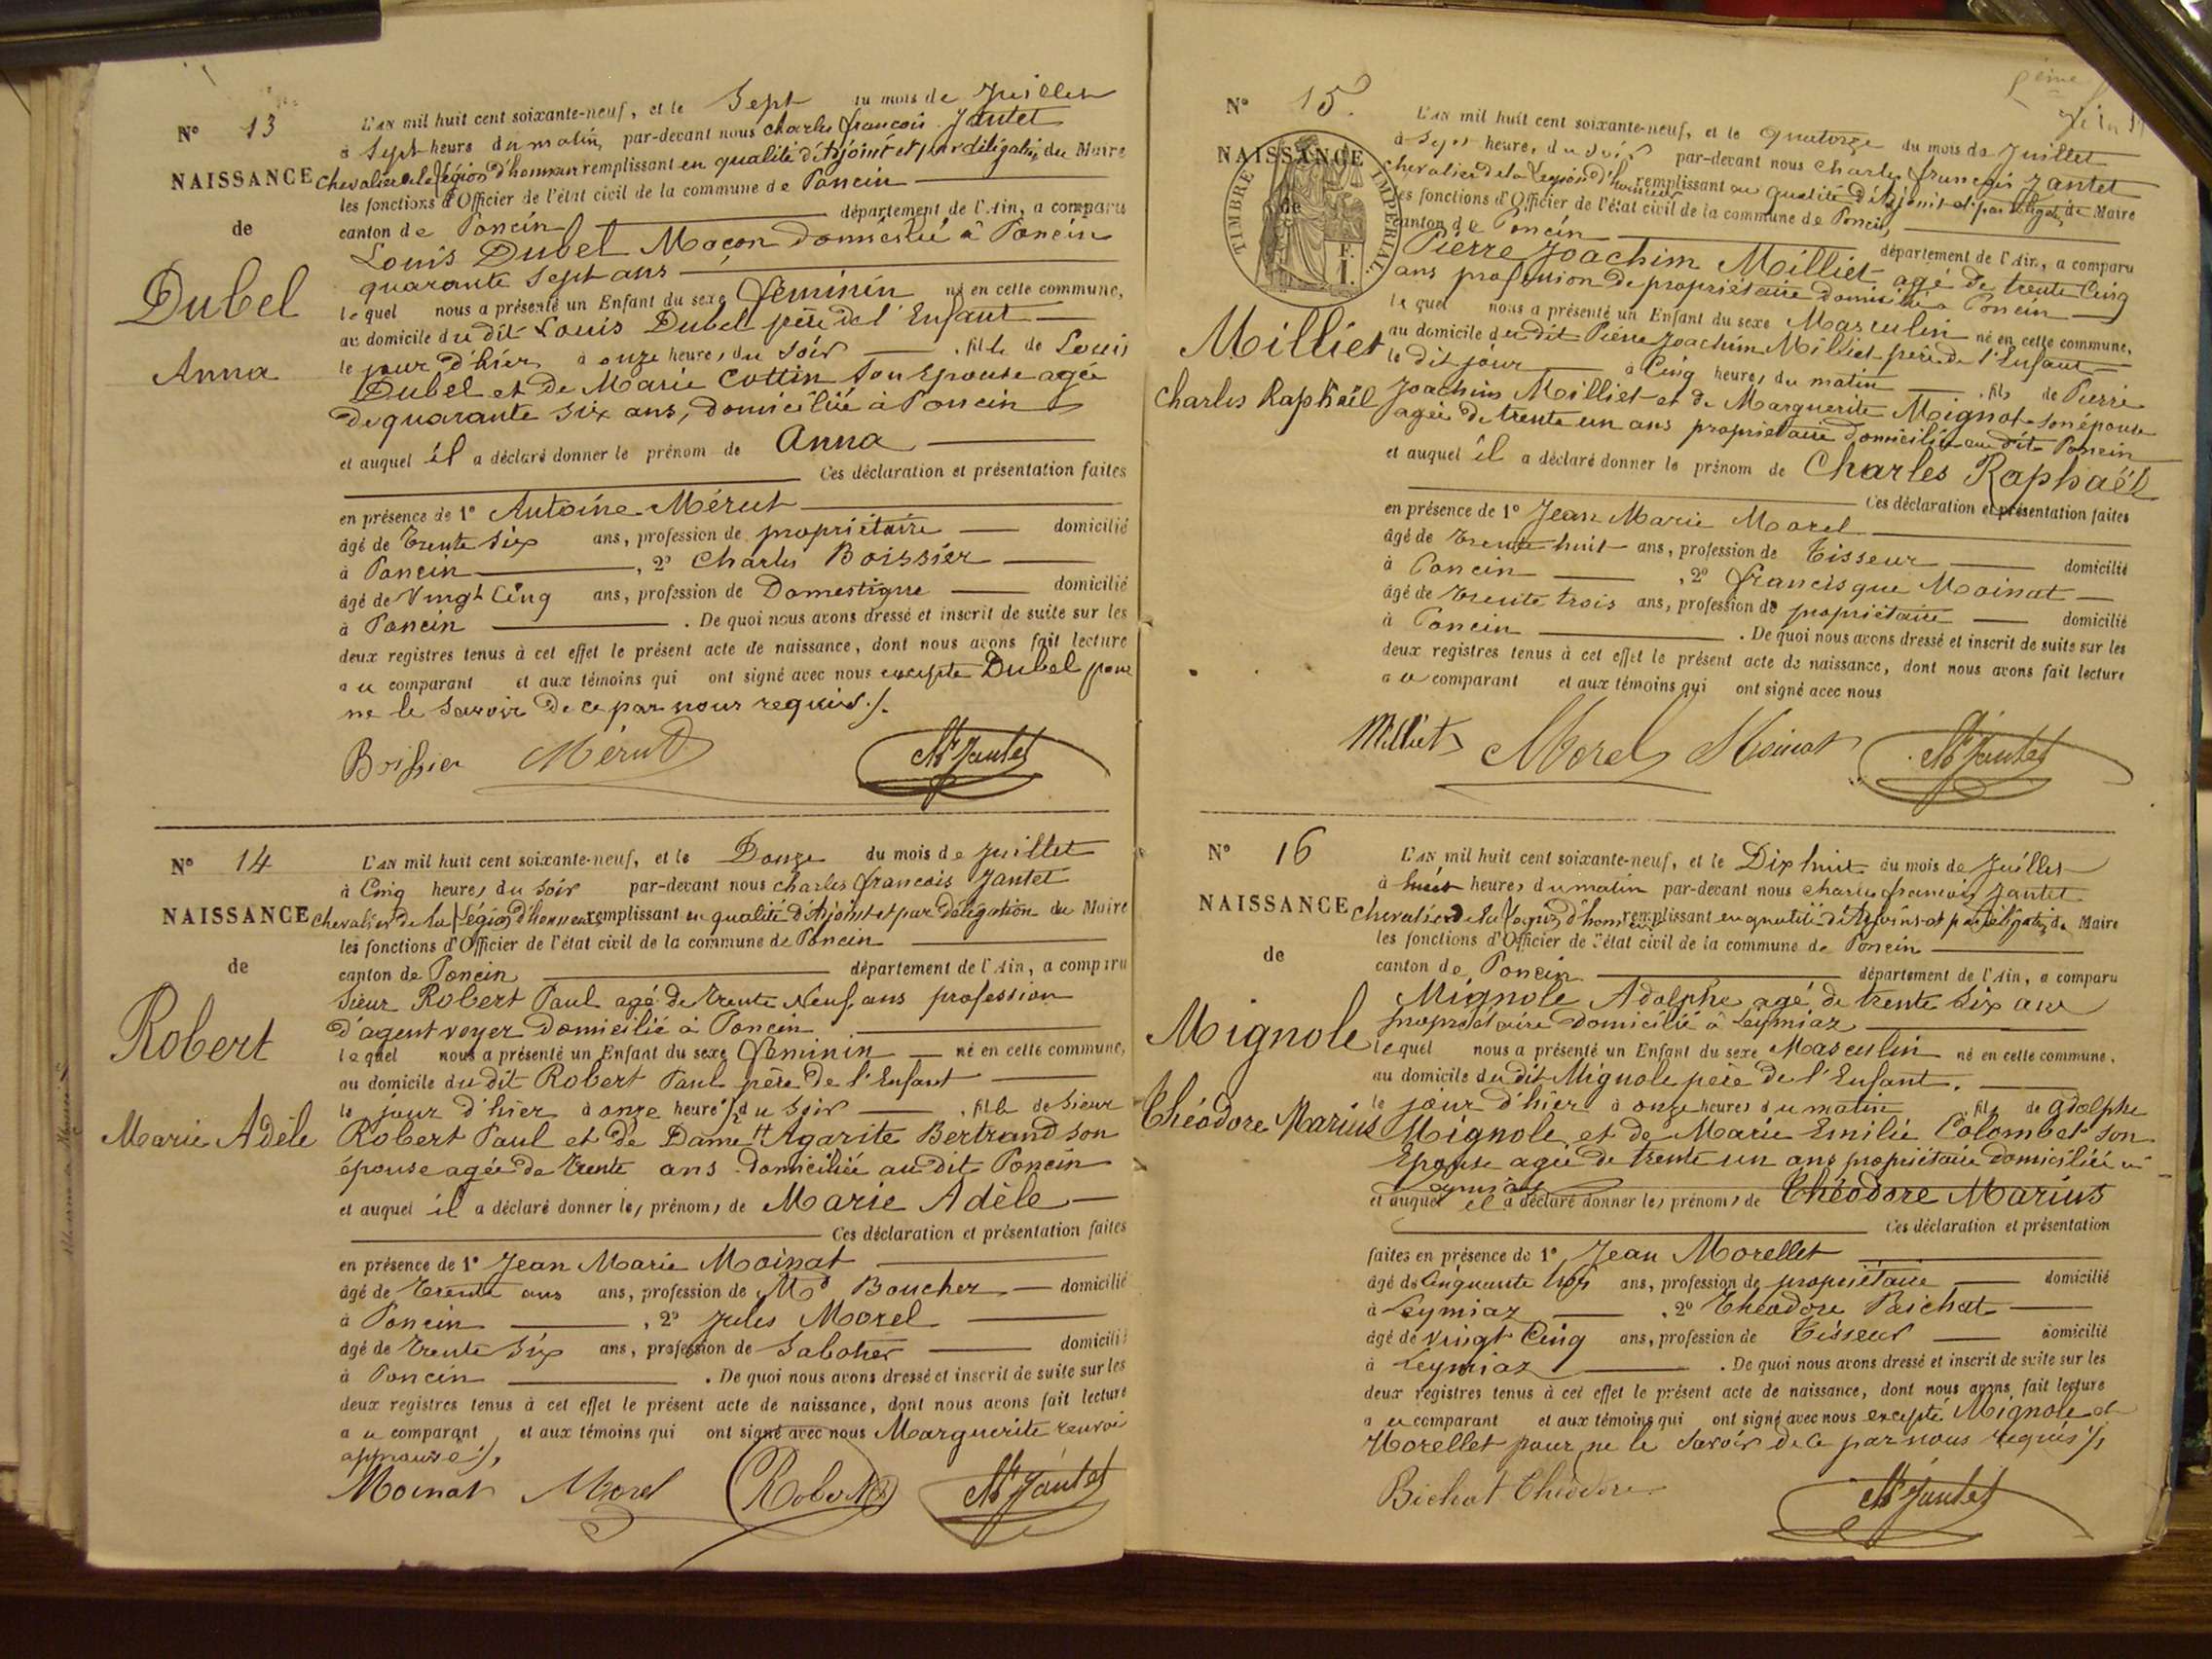 N° 13
NAISSANCE
de
Dubel
Anna
L'AN mil huit cent soixante-neuf, et le Sept du mois de Juillet
à Sept heure du matin, par-devant nous Charles françois Jantet
Chevalier de la Légion d'honneur remplissant en qualité d'Adjoint et par délégation du Maire
les fonctions d'Officier de l'état civil de la commune de Poncin
canton de Poncin département de l'Ain, a comparu
Louis Dubel Maçon domicilié à Poncin
quarante Sept ans
le quel nous a présenté un Enfant du sexe féminin né en cette commune,
au domicile du dit Louis Dubel père de l'Enfant
le jour d'hier à onze heures du soir , fille de Louis
Dubel et de Marie Cottin son Epouse agée
de quarante six ans, domiciliée à Poncin
et auquel il a déclaré donner le prénom de Anna
Ces déclaration et présentation faites
en présence de 1° Antoine Mérut
âgé de trente six ans, profession de propriétaire domicilié
à Poncin , 2° Charles Boissier
âgé de Vingt Cinq ans, profession de Domestique domicilié
à Poncin . De quoi nous avons dressé et inscrit de suite sur les
deux registres tenus à cet effet le présent acte de naissance, dont nous avons fait lecture
au comparant et aux témoins qui ont signé avec nous excepté Dubel pour
ne le Savoir de ce par nous requis ./.
Boissier Mérut Ch Jantet
N° 14
NAISSANCE
de
Robert
Marie Adèle
L'AN mil huit cent soixante-neuf, et le Douze du mois de Juillet
à Cinq heures du soir par-devant nous Charles françois Jantet
Chevalier de la Légion d'honneur remplissant en qualité d'Adjoint et par Délégation du Maire
les fonctions d'Officier de l'état civil de la commune de Poncin
canton de Poncin département de l'Ain, a comparu
Sieur Robert Paul agé de trente Neuf ans profession
d'agent voyer domicilié à Poncin
lequel nous a présenté un Enfant du sexe féminin né en cette commune,
au domicile du dit Robert Paul père de l'Enfant
le jour d'hier à onze heures ½ du soir , fille de Sieur
Robert Paul et de Dame Agarite Bertrand son
épouse agée de trente ans domiciliée au dit Poncin
et auquel il a déclaré donner les prénoms de Marie Adèle
Ces déclaration et présentation faites
en présence de 1° Jean Marie Moinat
âgé de trente ans ans, profession de Md Boucher domicilié
à Poncin , 2° Jules Morel
âgé de trente Six ans, profession de Sabotier domicilié
à Poncin . De quoi nous avons dressé et inscrit de suite sur les
deux registres tenus à cet effet le présent acte de naissance, dont nous avons fait lecture
au comparant et aux témoins qui ont signé avec nous Marguerite renvoi
approuvé ./.
Moinat Morel Robert Ch Jantet
N° 15.
NAISSANCE
de
TIMBRE IMPERIAL.
1 F.
Milliet
Charles Raphaël
L'AN mil huit cent soixante-neuf, et le quatorze du mois de Juillet
à Sept heure, du soir par-devant nous Charles françois Jantet
Chevalier de la Légion d'honneur remplissant en qualité d'Adjoint et par délégat. du Maire
les fonctions d'Officier de l'état civil de la commune de Poncin
canton de Poncin département de l'Ain, a comparu
Pierre Joachim Milliet agé de trente Cinq
ans profession de propriétaire domicilié à Poncin
le quel nous a présenté un Enfant du sexe Masculin né en cette commune,
au domicile du dit Pierre Joachim Milliet père de l'Enfant
le dit jour à Cinq heures du matin , fils de Pierre
Joachim Milliet et de Marguerite Mignot son épouse
agée de trente un ans propriétaire domiciliée au dit Poncin
et auquel il a déclaré donner le prénom de Charles Raphaël
Ces déclaration et présentation faites
en présence de 1° Jean Marie Morel
âgé de trente huit ans, profession de Tisseur domicilié
à Poncin , 2° francisque Moinat
âgé de trente trois ans, profession de propriétaire domicilié
à Poncin . De quoi nous avons dressé et inscrit de suite sur les
deux registres tenus à cet effet le présent acte de naissance, dont nous avons fait lecture
au comparant et aux témoins qui ont signé avec nous
Milliet Morel Moinat Ch Jantet
N° 16
NAISSANCE
de
Mignole
Théodore Marius
L'AN mil huit cent soixante-neuf, et le Dix huit du mois de Juillet
à huit heures du matin par-devant nous Charles françois Jantet
Chevalier de la Légion d'honneur remplissant en qualité d'Adjoint et par délégation du Maire
les fonctions d'Officier de l'état civil de la commune de Poncin
canton de Poncin département de l'Ain, a comparu
Mignole Adolphe agé de trente Six ans
propriétaire domicilié à Leymiaz
lequel nous a présenté un Enfant du sexe Masculin né en cette commune,
au domicile du dit Mignole père de l'Enfant.
le jour d'hier à onze heures du matin , fils de Adolphe
Mignole et de Marie Emilie Colombet son
Epouse agée de trente un ans propriétaire domiciliée à
Leymiaz
et auquel il a déclaré donner les prénoms de Théodore Marius
Ces déclaration et présentation
faites en présence de 1° Jean Morellet
âgé de Cinquante ans, profession de propriétaire domicilié
à Leymiaz , 2° Théodore Paichat
âgé de Vingt Cinq ans, profession de Tisseur domicilié
à Leymiaz . De quoi nous avons dressé et inscrit de suite sur les
deux registres tenus à cet effet le présent acte de naissance, dont nous avons fait lecture
au comparant et aux témoins qui ont signé avec nous excepté Mignole et
Morellet pour ne le Savoir de ce par nous requis ./.
Bichat Théodore Ch Jantet